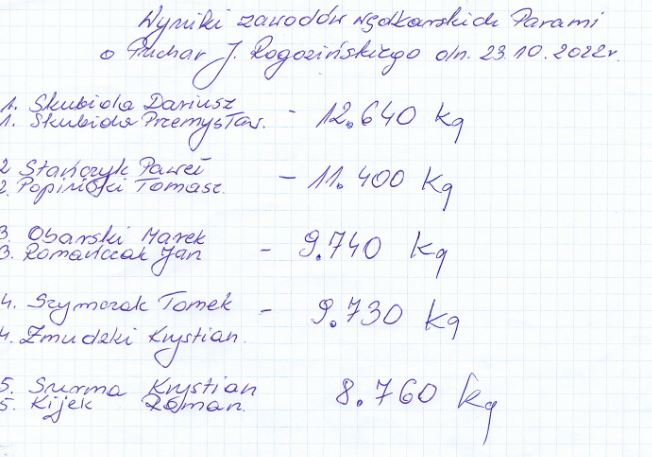 Wyniki zawodów wędkarskich Parami
o Puchar J. Rogozińskiego dn. 23.10.2022r.
1. Skubida Dariusz
1. Skubida Przemysław. - 12.640 kg
2 Stańczyk Paweł
2. Popiński Tomasz. - 11.400 kg
3 Obarski Marek
3. Romańczak Jan - 9.740 kg
4. Szymczak Tomek - 9.730 kg
4. Żmudzki Krystian.
5. Surma Krystian
5. Kijek Roman. 8.760 kg